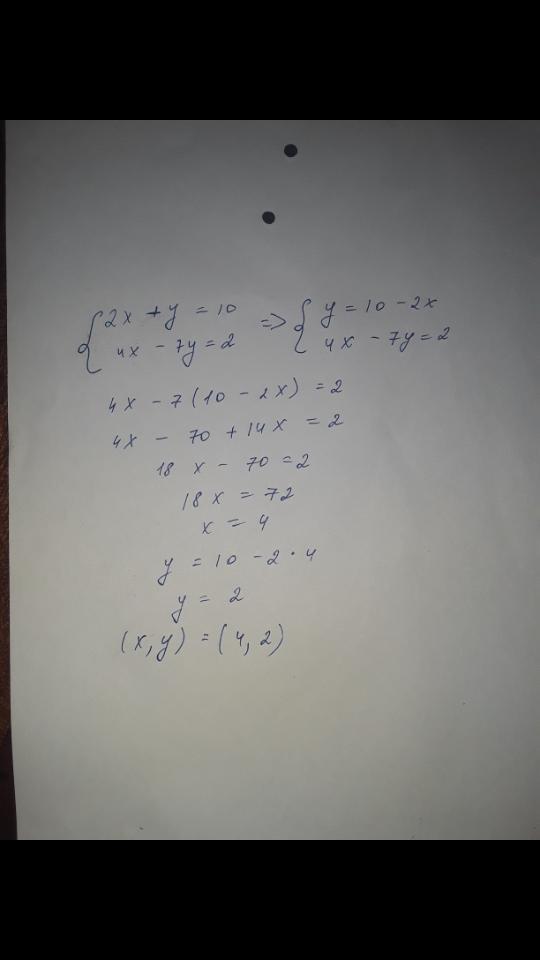 {2x + y = 10 => {y = 10 - 2x
4x - 7y = 2 4x - 7y = 2
4x - 7(10 - 2x) = 2
4x - 70 + 14x = 2
18x - 70 = 2
18x = 72
x = 4
y = 10 - 2 · 4
y = 2
(x, y) = (4, 2)